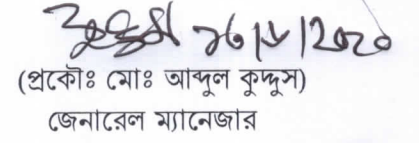 ২৬/৮/২০২০
(প্রকৌঃ মোঃ আব্দুল কুদ্দুস)
জেনারেল ম্যানেজার